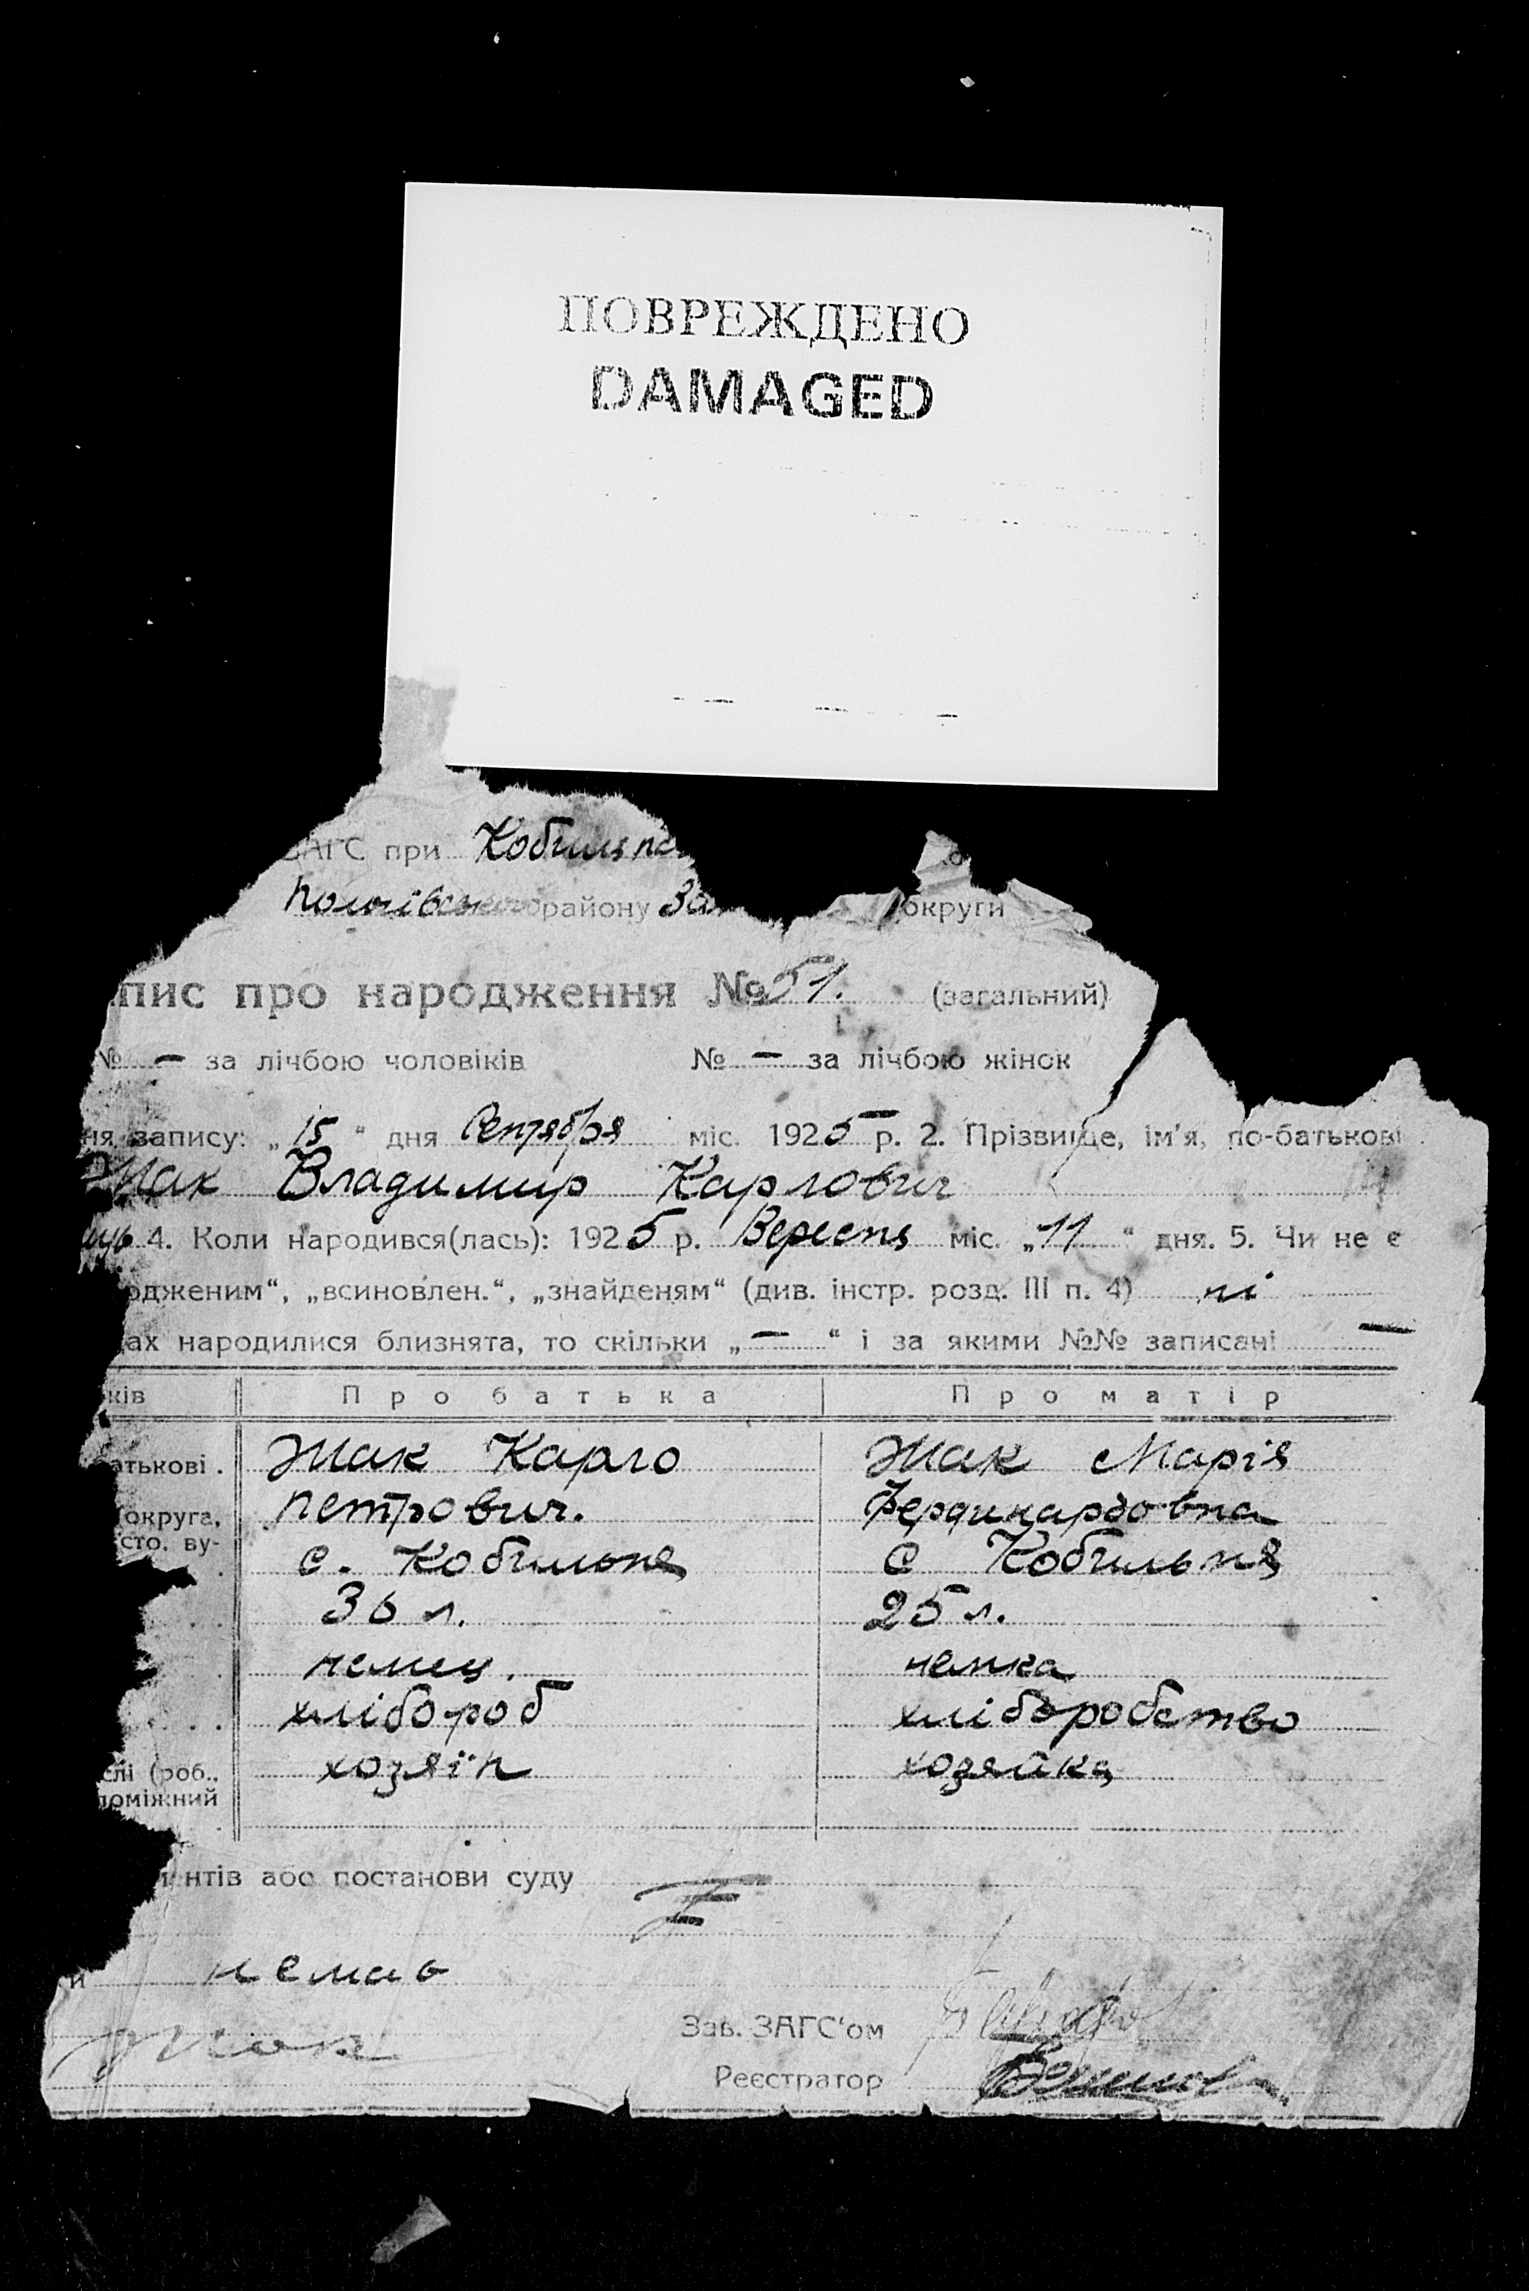 ПОВРЕЖДЕНО
DAMAGED
ЗАГС при
району округи
пис про народження № 51. (загальний)
№ — за лічбою чоловіків № — за лічбою жінок
ня запису: „15“ дня Сентября міс. 1925 р. 2. Прізвище, ім'я, по-батькові
Жак Владимир Карлович
4. Коли народився(лась): 1925 р. Вересня міс. „11“ дня. 5. Чи не є
одженим“, „всиновлен.“, „знайденям“ (див. інстр. розд. III п. 4) ні
ах народилися близнята, то скільки „—“ і за якими №№ записані —
ків Про батька Про матір
атькові. Жак Карло Жак Марія
округа, Петрович. Фердинардовна
сто. ву- с. Кобильне с Кобильня
36 л. 25 л.
немец. немка
хлібороб хліборобство
слі (роб., хозяїн хозяйка
поміжний
нтів або постанови суду
и немає
Жак Зав. ЗАГС'ом
Реєстратор